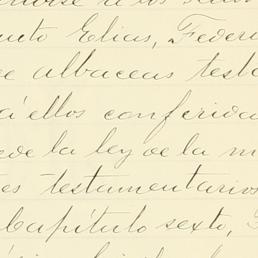 a los
Elias, Federi
albaceas testa
á ellos conferida
de la ley de la m
es testamentarios
Capítulo sexto,